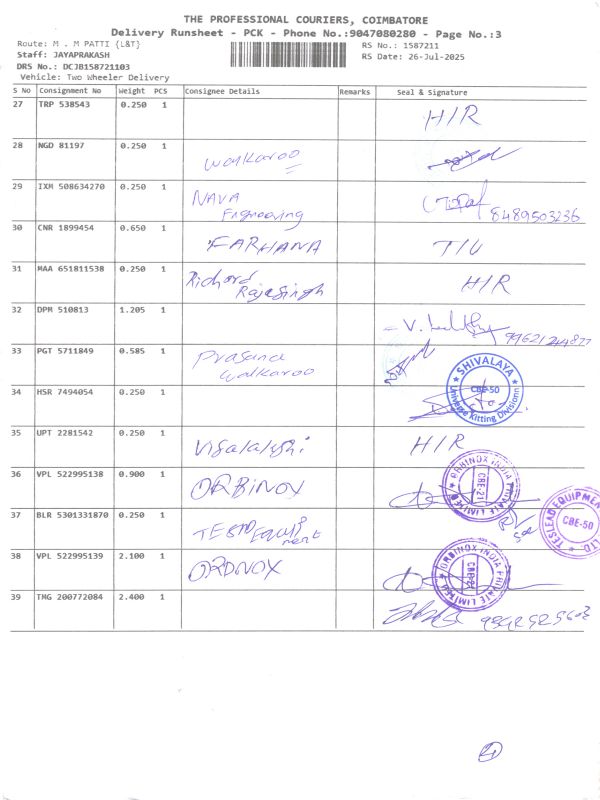 THE PROFESSIONAL COURIERS, COIMBATORE
Delivery Runsheet - PCK - Phone No.:9047080280 - Page No.:3
Route: M . M PATTI {L&T}
RS No.: 1587211
Staff: JAYAPRAKASH
RS Date: 26-Jul-2025
DRS No.: DCJB158721103
Vehicle: Two Wheeler Delivery
S No Consignment No Weight PCS Consignee Details Remarks Seal & Signature
27 TRP 538543 0.250 1 H/R
28 NGD 81197 0.250 1 Walkaroo
29 IXM 508634270 0.250 1 NAVA Engneering 8489503236
30 CNR 1899454 0.650 1 FARHANA T/U
31 MAA 651811538 0.250 1 Richard Rajasingh H/R
32 DPM 510813 1.205 1 99621244877
33 PGT 5711849 0.585 1 Prasana Walkaroo
34 HSR 7494054 0.250 1 SHIVALAYA CBE-50 Universe Kitting Divisionn
35 UPT 2281542 0.250 1 Visalalyshi H/R
36 VPL 522995138 0.900 1 ORBINOX ORBINOX INDIA PRIVATE LIMITED CBE-21
37 BLR 5301331870 0.250 1 TEStD Equip ment TESLEAD EQUIPMEN CBE-50 LTD.
38 VPL 522995139 2.100 1 ORDNOX ORBINOX INDIA PRIVATE LIMITED CBE-21
39 TMG 200772084 2.400 1
4